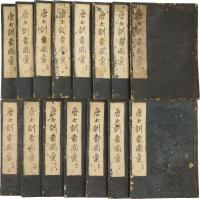 唐土訓蒙圖彙
唐土訓蒙圖彙
唐土訓蒙圖彙
唐土訓蒙圖彙
唐土訓蒙圖彙
唐土訓蒙圖彙
唐土訓蒙圖彙
唐土訓蒙圖彙
唐土訓蒙圖彙
唐土訓蒙圖彙
唐土訓蒙圖彙
唐土訓蒙圖彙
唐土訓蒙圖彙
唐土訓蒙圖彙